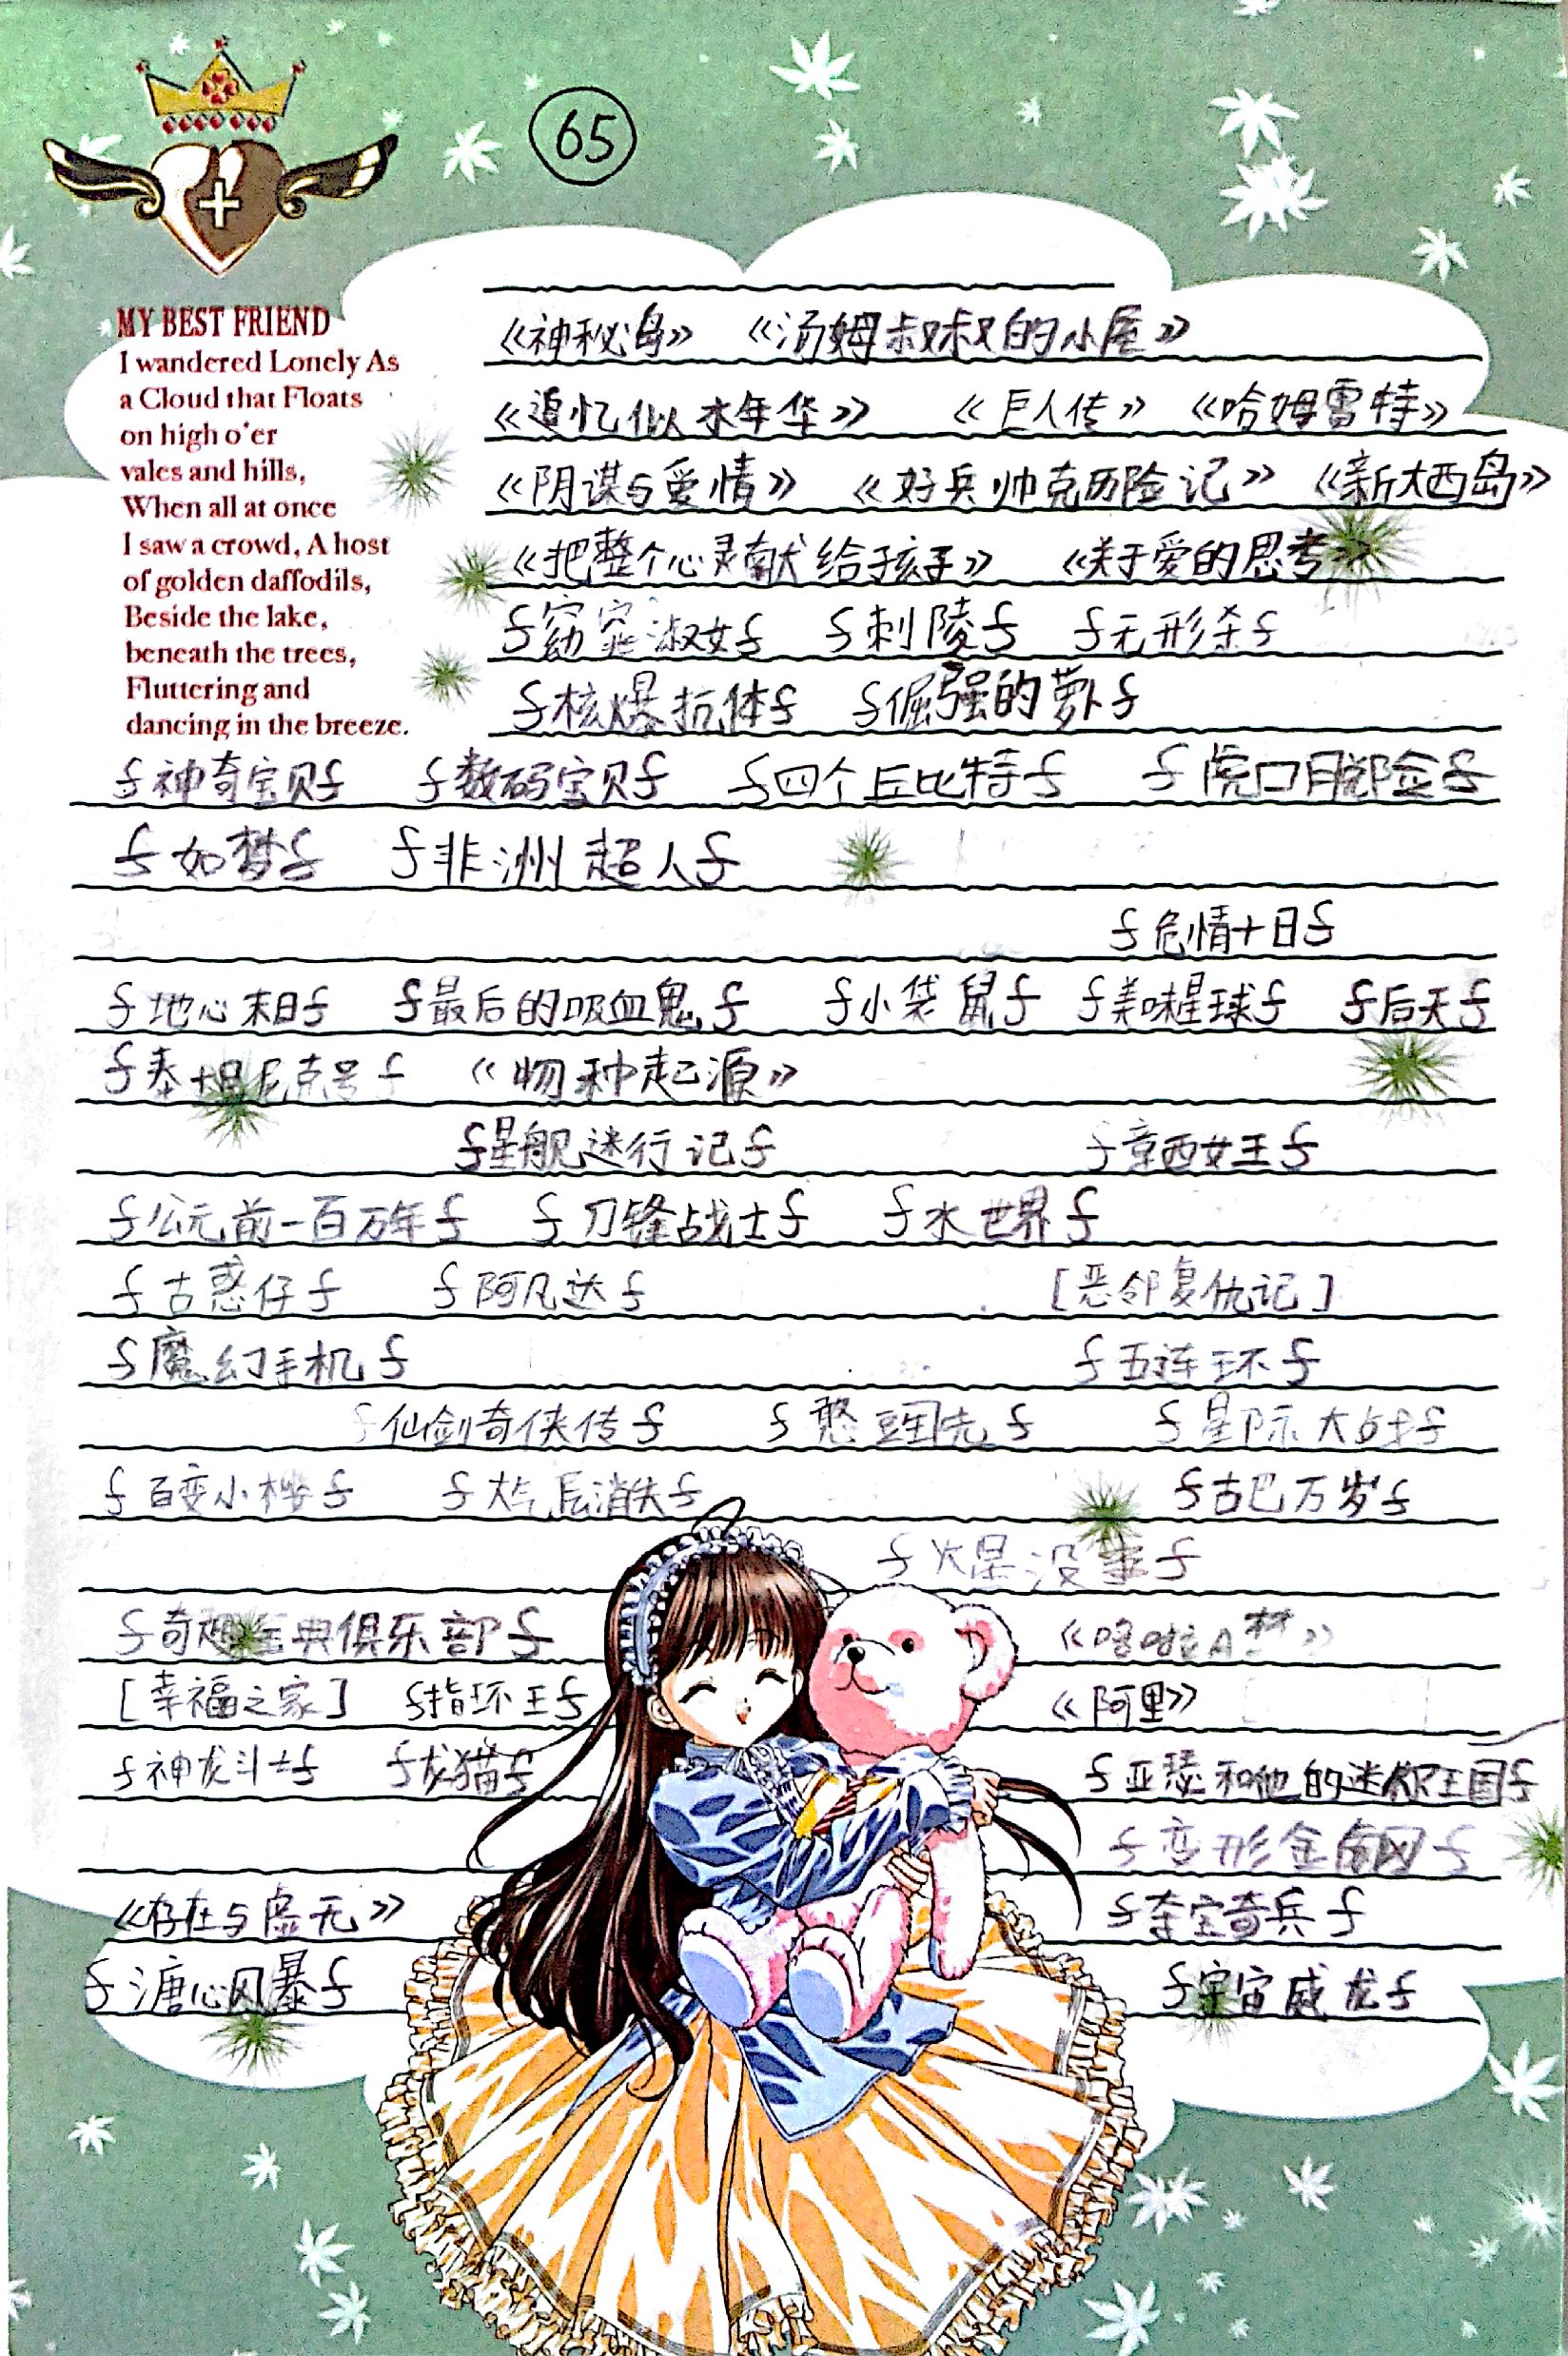 65
MY BEST FRIEND
I wandered Lonely As
a Cloud that Floats
on high o'er
vales and hills,
When all at once
I saw a crowd, A host
of golden daffodils,
Beside the lake,
beneath the trees,
Fluttering and
dancing in the breeze.
《神秘岛》 《汤姆叔叔的小屋》
《追忆似水年华》 《巨人传》 《哈姆雷特》
《阴谋与爱情》 《好兵帅克历险记》 《新大西岛》
《把整个心灵献给孩子》 《关于爱的思考》
{窈窕淑女} {刺陵} {无形杀}
{核爆抗体} {倔强的萝卜}
{神奇宝贝} {数码宝贝} {四个丘比特} {虎口脱险}
{如梦} {非洲超人}
{危情十日}
{地心末日} {最后的吸血鬼} {小袋鼠} {美味星球} {后天}
{泰坦尼克号} 《物种起源》
{星舰迷行记} {章西女王}
{公元前一百万年} {刀锋战士} {水世界}
{古惑仔} {阿凡达} [恶邻复仇记]
{魔幻手机} {五连环}
{仙剑奇侠传} {憨豆先} {星际大战}
{百变小樱} {大气层消失} {古巴万岁}
{火星没事}
{奇想宝典俱乐部} 《哆啦A梦》
[幸福之家] {指环王} 《阿里》
{神龙斗士} {龙猫} {亚瑟和他的迷你王国}
{变形金刚}
《存在与虚无》 {夺宝奇兵}
{溏心风暴} {宇宙威龙}